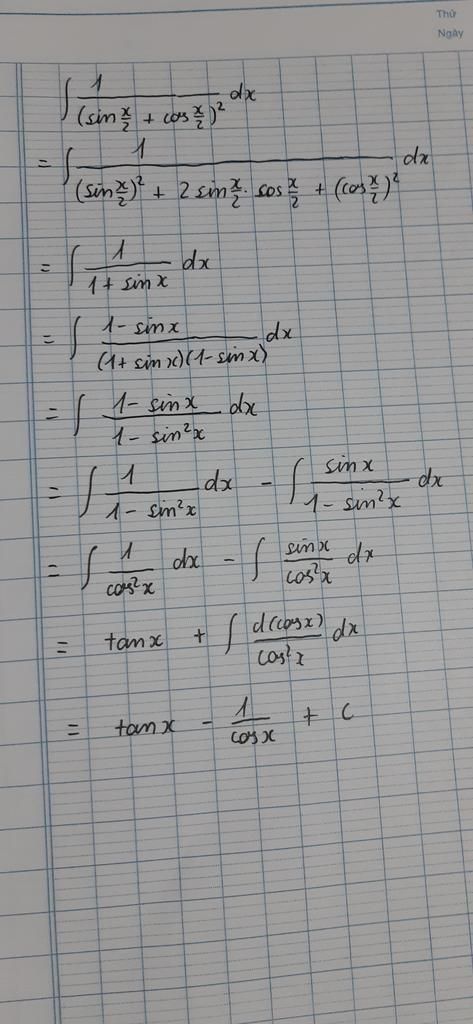 Thứ
Ngày
∫ 1/(sin x/2 + cos x/2)² dx
= ∫ 1/((sin x/2)² + 2 sin x/2 . cos x/2 + (cos x/2)²) dx
= ∫ 1/(1 + sin x) dx
= ∫ (1 - sin x)/((1 + sin x)(1 - sin x)) dx
= ∫ (1 - sin x)/(1 - sin²x) dx
= ∫ 1/(1 - sin²x) dx - ∫ sin x/(1 - sin²x) dx
= ∫ 1/cos²x dx - ∫ sin x/cos²x dx
= tan x + ∫ d(cos x)/cos²x dx
= tan x - 1/cos x + C